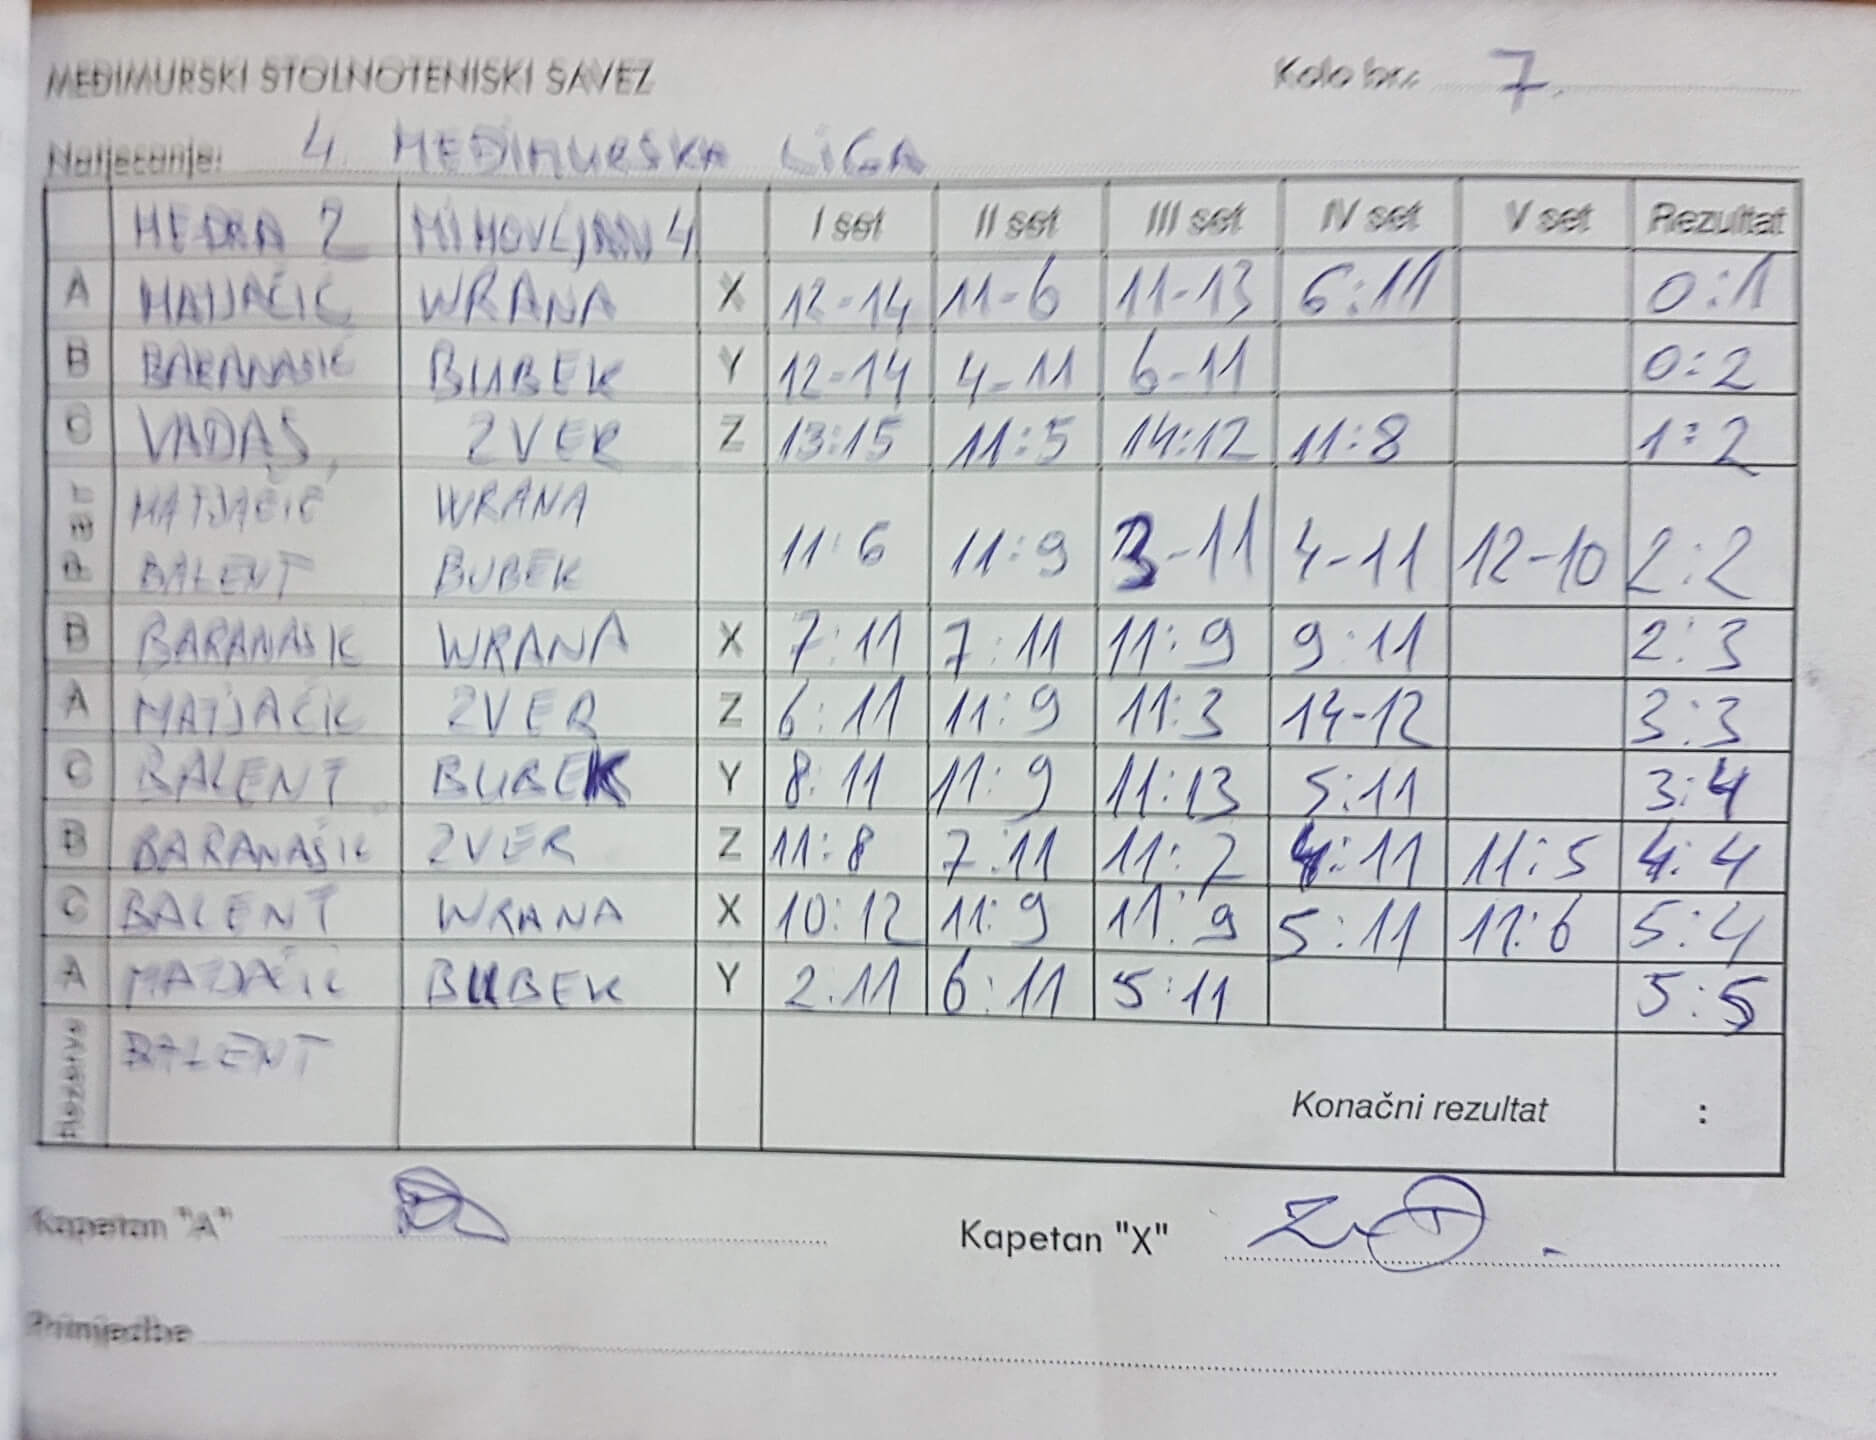 MEĐIMURSKI STOLNOTENISKI SAVEZ Kolo br. 7.
Natjecanje: 4. MEĐIMURSKA LIGA
HEDRA 2 MIHOVLJAN 4 I set II set III set IV set V set Rezultat
A MATJAČIĆ WRANA X 12-14 11-6 11-13 6:11 0:1
B BARANAŠIĆ BUBEK Y 12-14 4-11 6-11 0:2
C VADAS ZVER Z 13:15 11:5 14:12 11:8 1:2
Par MATJAČIĆ WRANA
BALENT BUBEK 11:6 11:9 3-11 4-11 12-10 2:2
B BARANAŠIĆ WRANA X 7:11 7:11 11:9 9:11 2:3
A MATJAČIĆ ZVER Z 6:11 11:9 11:3 14-12 3:3
C BALENT BUBEK Y 8:11 11:9 11:13 5:11 3:4
B BARANAŠIĆ ZVER Z 11:8 7:11 11:2 4:11 11:5 4:4
C BALENT WRANA X 10:12 11:9 11:9 5:11 11:6 5:4
A MATJAČIĆ BUBEK Y 2:11 6:11 5:11 5:5
Rezerve BALENT
Konačni rezultat :
Kapetan "A" Kapetan "X"
Primjedbe